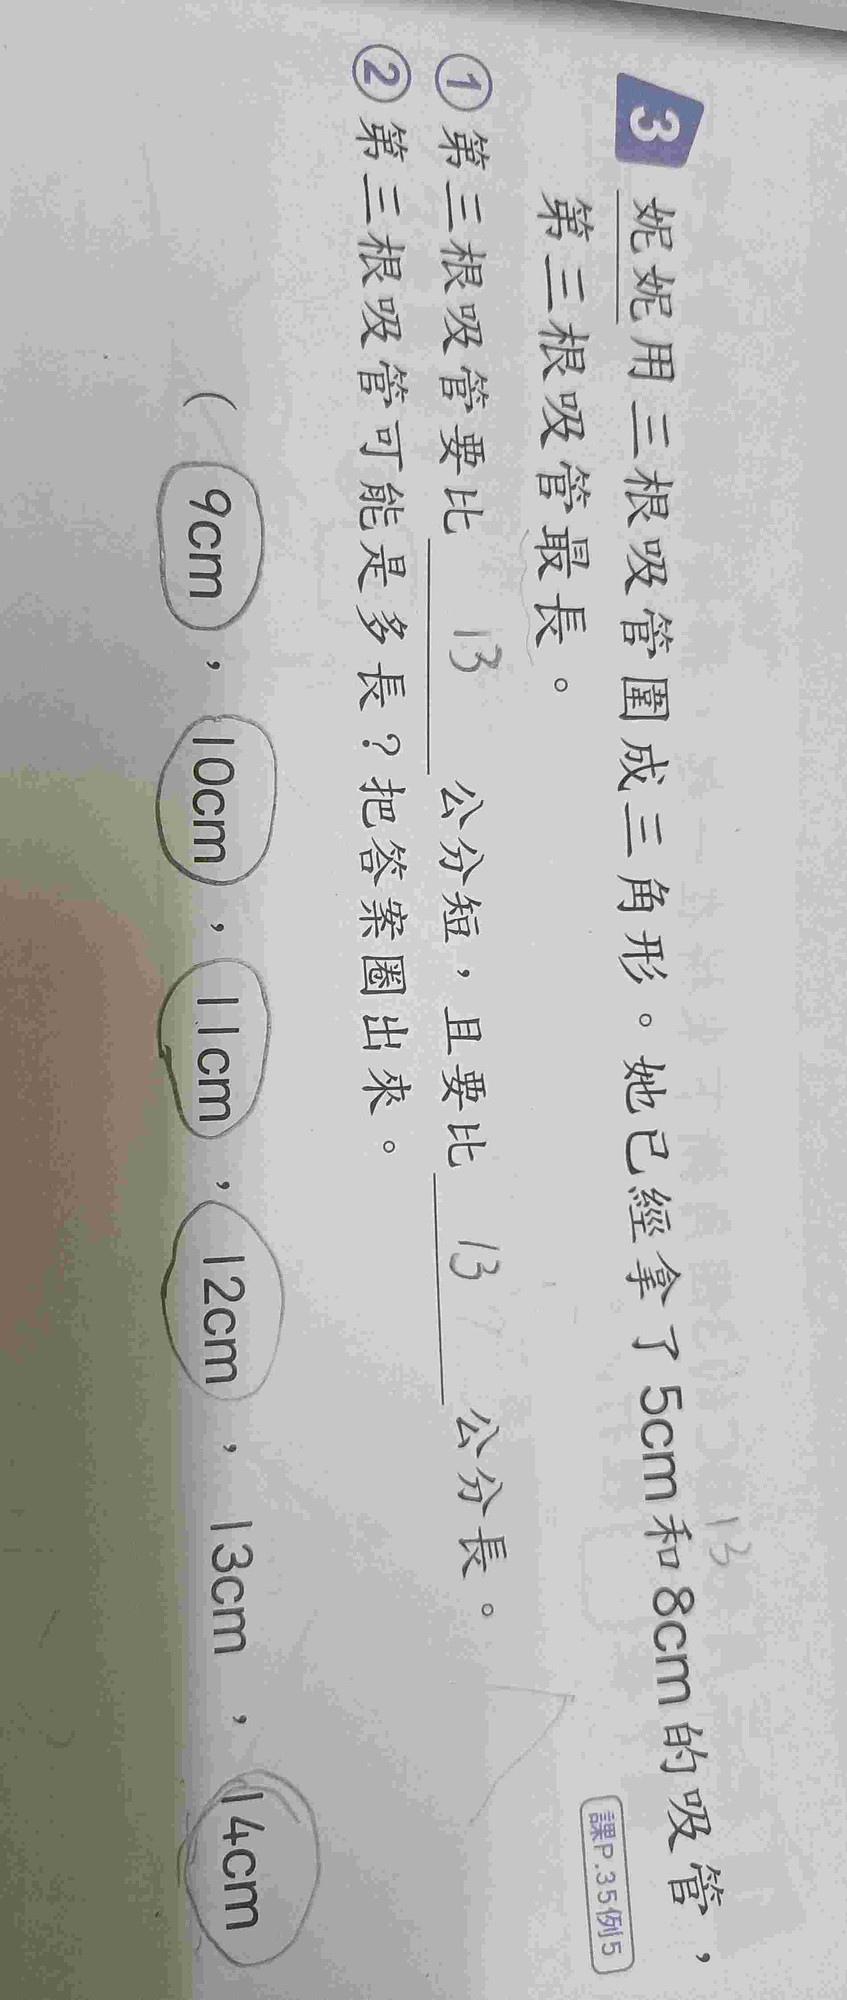 13
3 妮妮用三根吸管圍成三角形。她已經拿了5cm和8cm的吸管，
第三根吸管最長。
課P.35例5
①第三根吸管要比 13 公分短，且要比 13 公分長。
②第三根吸管可能是多長？把答案圈出來。
( 9cm ， 10cm ， 11cm ， 12cm ， 13cm ， 14cm